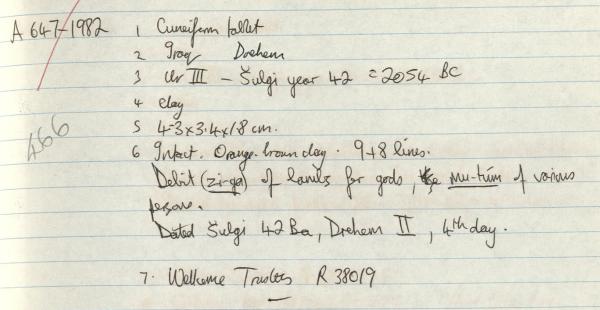 A 647-1982 1 Cuneiform tablet
2 Iraq Drehem
3 Ur III - Šulgi year 42 = 2054 BC
4 clay
5 4.3 x 3.4 x 1.8 cm.
466
6 Intact. Orange-brown clay. 9+8 lines.
Debit (zi-ga) of lambs for gods, the mu-túm of various
persons.
Dated Šulgi 42 Ba, Drehem II, 4th day.
7. Wellcome Trustees R 38019